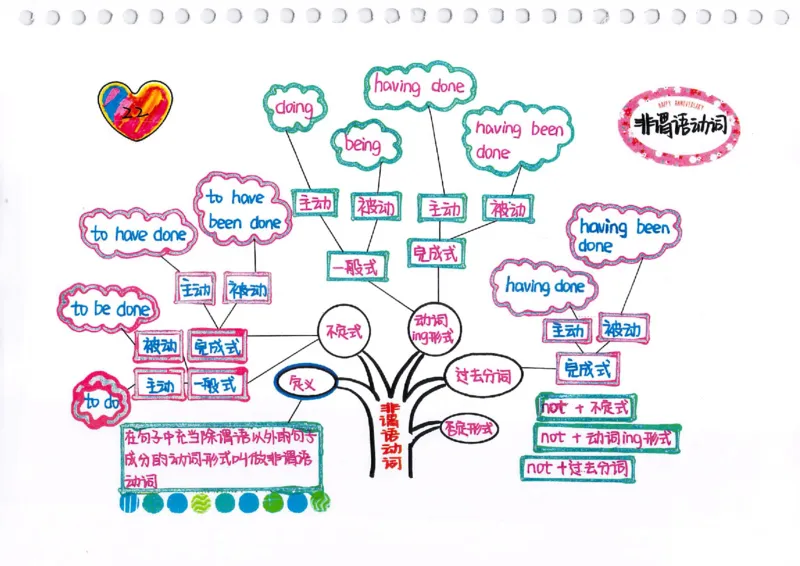 22
HAPPY ANNIVERSARY
非谓语动词
doing
having done
being
having been
done
主动
被动
主动
被动
一般式
完成式
to have
been done
to have done
主动
被动
to be done
被动
完成式
to do
主动
一般式
不定式
动词
ing形式
having been
done
having done
主动
被动
完成式
过去分词
定义
否定形式
非谓语动词
在句子中充当除谓语以外的句子
成分的动词形式叫做非谓语
动词
not + 不定式
not + 动词ing形式
not +过去分词